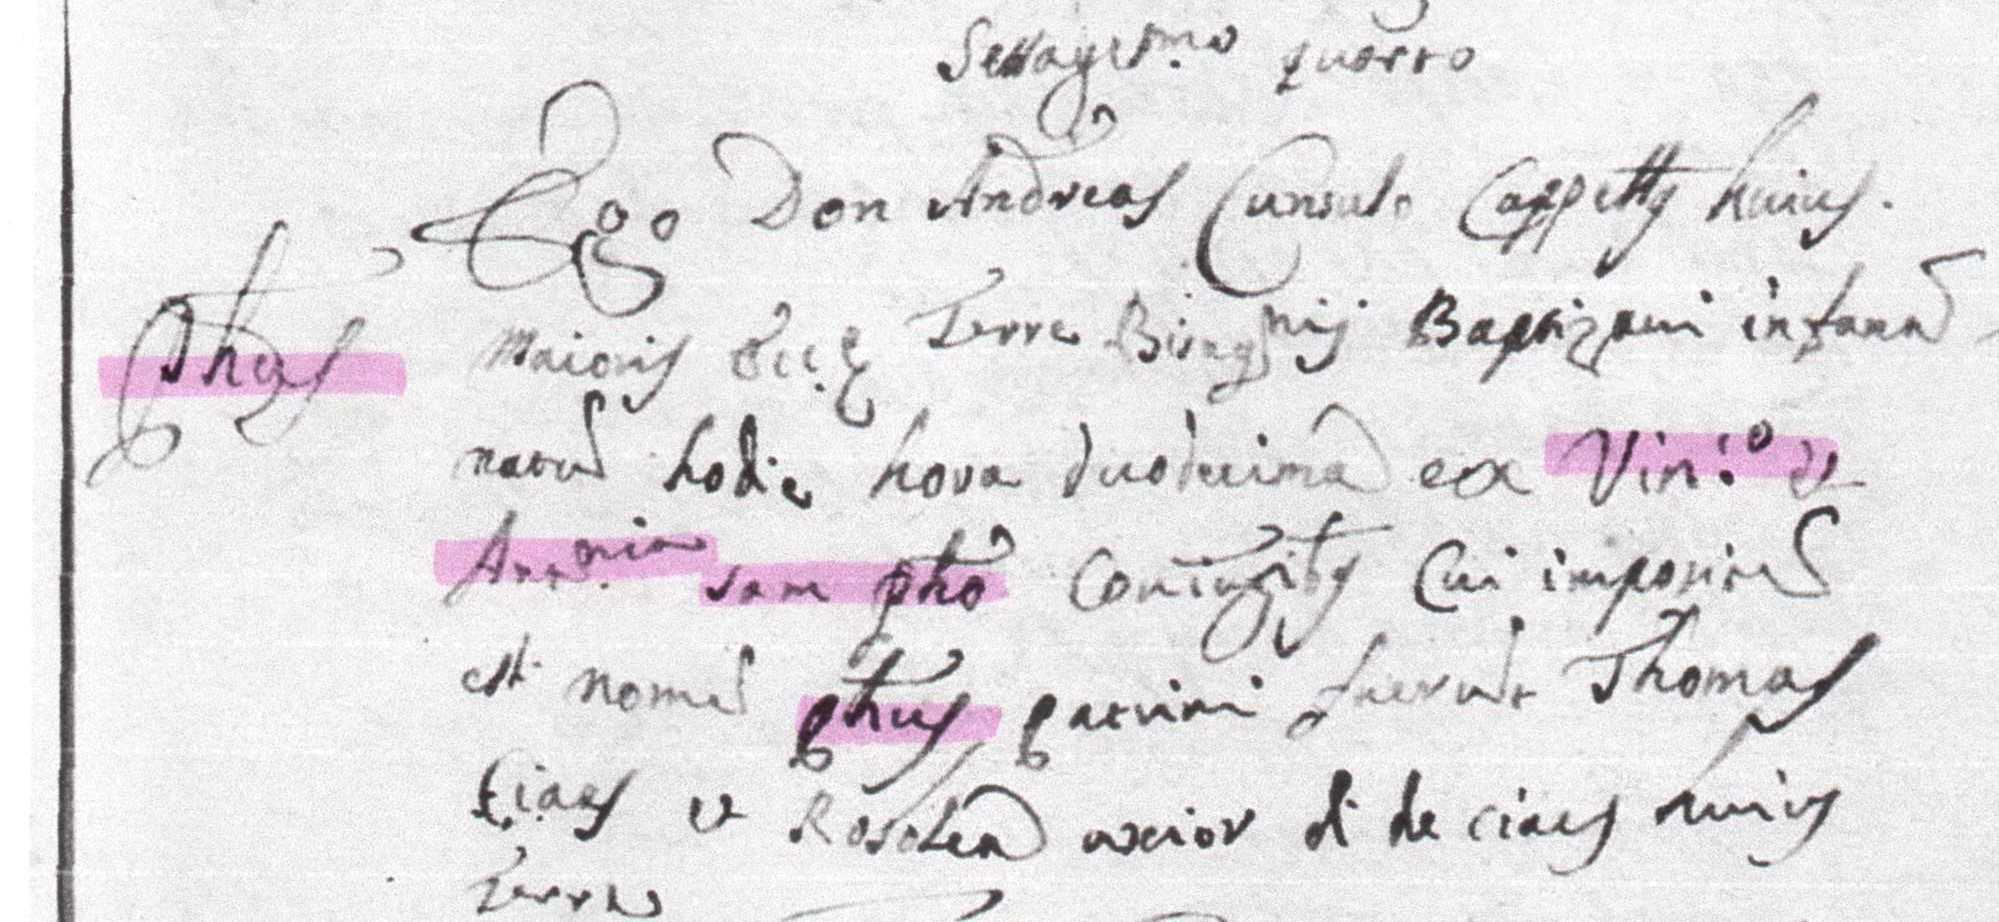 Sexagesimo quarto
Ego Don Andreas Consulo Cappellanus huius
Phus
Maioris Ecc.e Terre Bisagnij Baptizaui infantē
natū hodie hora duodecima ex Vin.o et
Ant.nia Sam phō Coniugibus Cui impositū
est nomē phus patrini fuerūt Thomas
Ciaes et Rosolea uxior di de ciaes huius
Terre